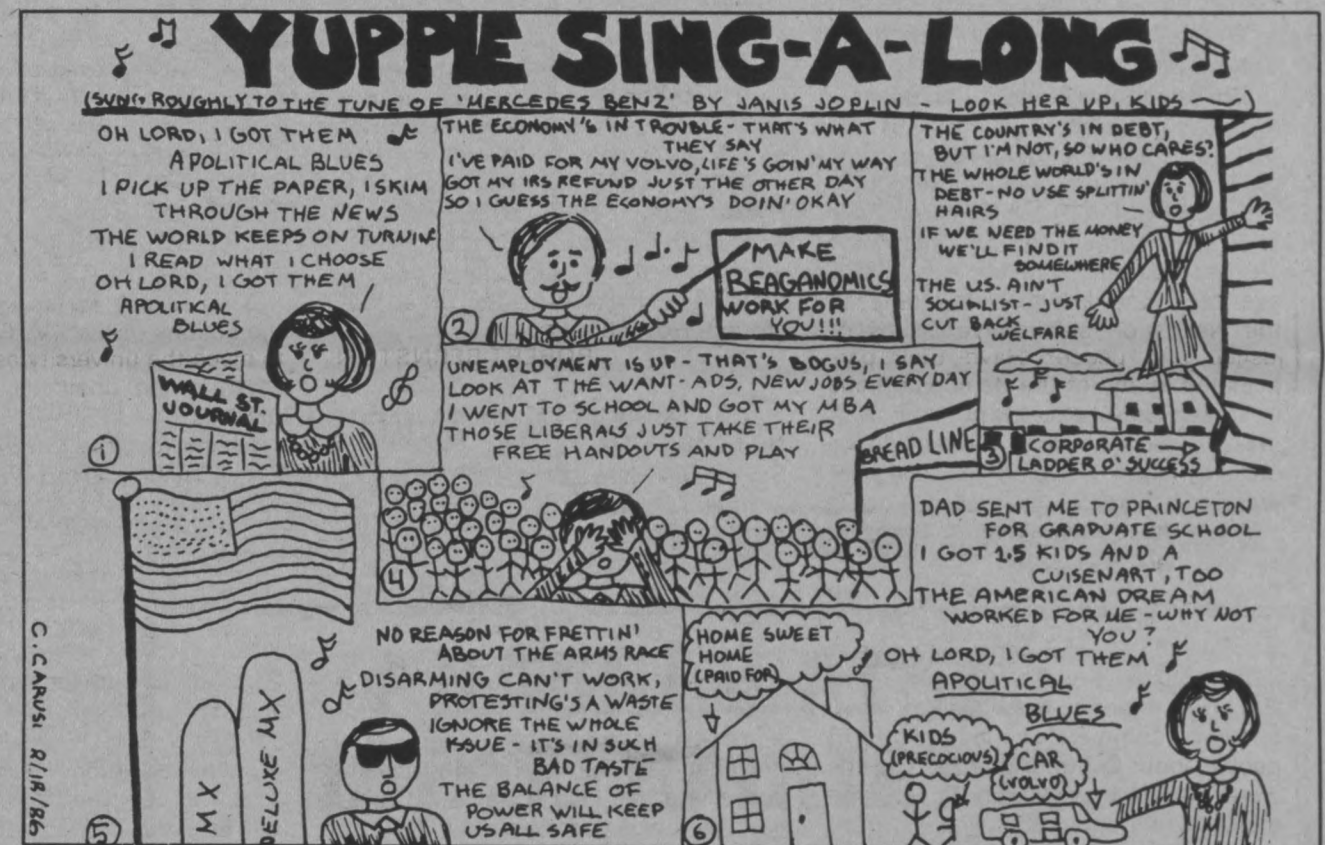 YUPPIE SING-A-LONG
(SUNG ROUGHLY TO THE TUNE OF 'MERCEDES BENZ' BY JANIS JOPLIN - LOOK HER UP, KIDS
OH LORD, I GOT THEM
APOLITICAL BLUES
I PICK UP THE PAPER, I SKIM
THROUGH THE NEWS
THE WORLD KEEPS ON TURNIN'
I READ WHAT I CHOOSE
OH LORD, I GOT THEM
APOLITICAL
BLUES
WALL ST.
JOURNAL
1
THE ECONOMY'S IN TROUBLE - THAT'S WHAT
THEY SAY
I'VE PAID FOR MY VOLVO, LIFE'S GOIN' MY WAY
GOT MY IRS REFUND JUST THE OTHER DAY
SO I GUESS THE ECONOMY'S DOIN' OKAY
MAKE
REAGANOMICS
WORK FOR
YOU!!!
2
THE COUNTRY'S IN DEBT,
BUT I'M NOT, SO WHO CARES?
THE WHOLE WORLD'S IN
DEBT - NO USE SPLITTIN'
HAIRS
IF WE NEED THE MONEY
WE'LL FIND IT
SOMEWHERE
THE U.S. AIN'T
SOCIALIST - JUST
CUT BACK
WELFARE
3
CORPORATE
LADDER O' SUCCESS
UNEMPLOYMENT IS UP - THAT'S BOGUS, I SAY
LOOK AT THE WANT-ADS, NEW JOBS EVERYDAY
I WENT TO SCHOOL AND GOT MY MBA
THOSE LIBERALS JUST TAKE THEIR
FREE HANDOUTS AND PLAY
BREAD LINE
4
NO REASON FOR FRETTIN'
ABOUT THE ARMS RACE
DISARMING CAN'T WORK,
PROTESTING'S A WASTE
IGNORE THE WHOLE
ISSUE - IT'S IN SUCH
BAD TASTE
THE BALANCE OF
POWER WILL KEEP
US ALL SAFE
MX
DELUXE MX
5
C. CARUSI
DAD SENT ME TO PRINCETON
FOR GRADUATE SCHOOL
I GOT 2.5 KIDS AND A
CUISENART, TOO
THE AMERICAN DREAM
WORKED FOR ME - WHY NOT
YOU?
OH LORD, I GOT THEM
APOLITICAL
BLUES
HOME SWEET
HOME
(PAID FOR)
KIDS
(PRECOCIOUS)
CAR
(VOLVO)
6